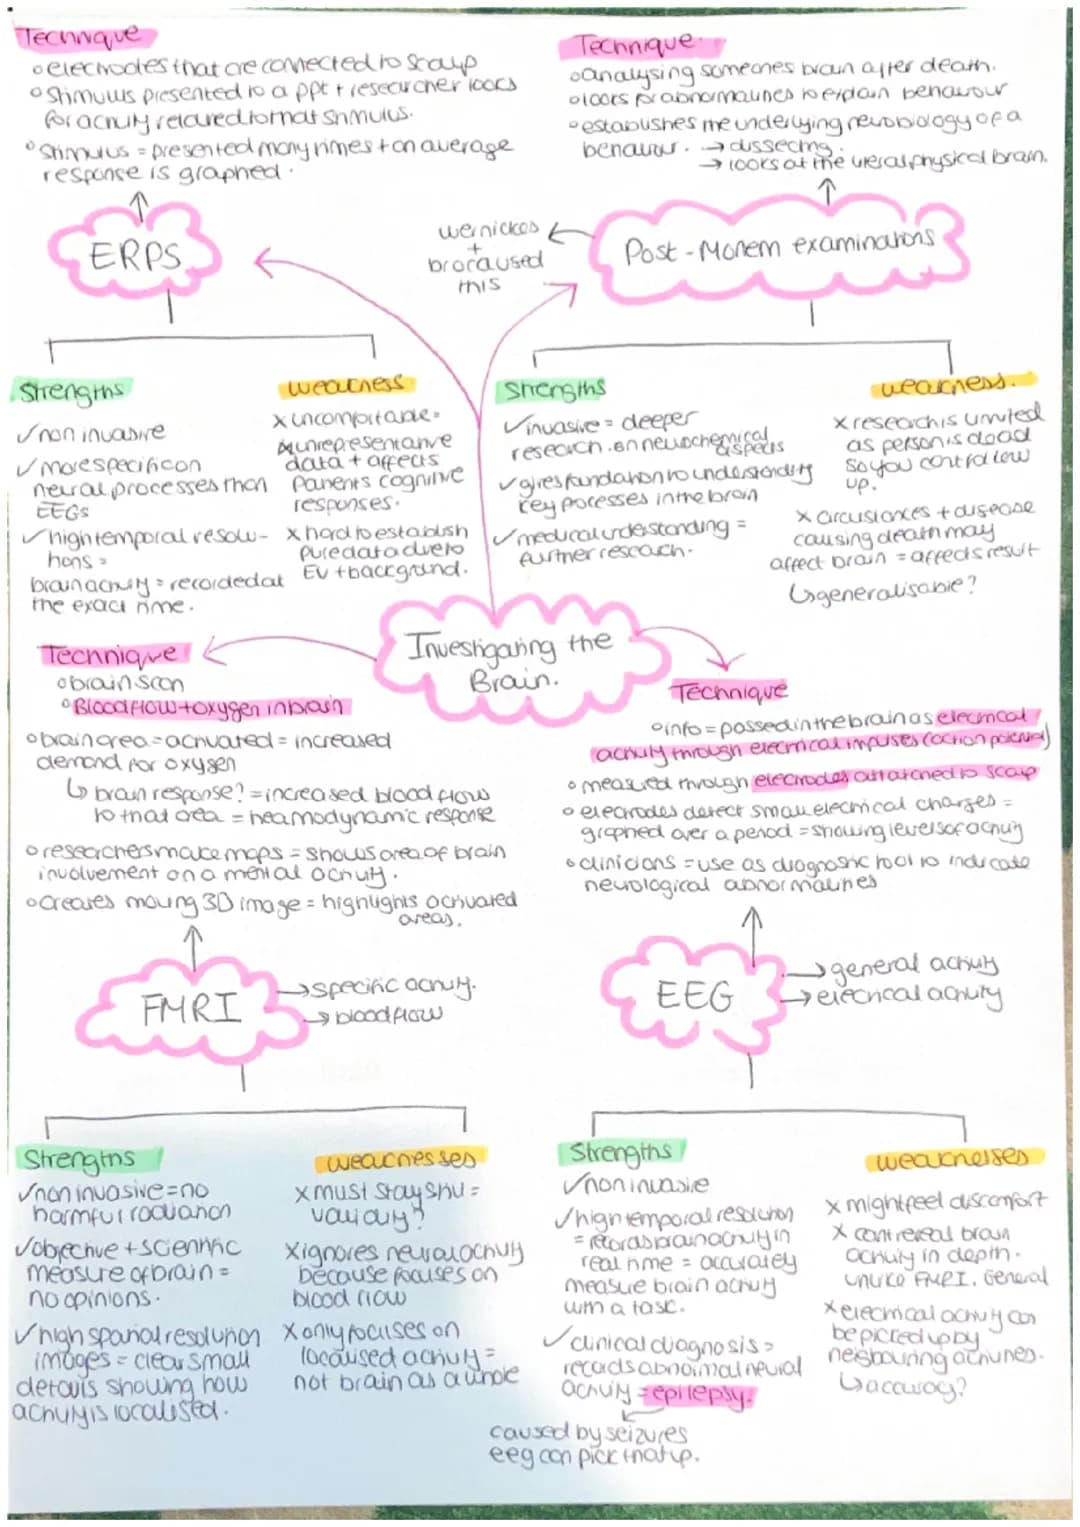 Technique
electrodes that are connected to scalp
Stimulus presented to a ppt + researcher looks
for activity related to that stimulus.
Stimulus = presented many times + an average
response is graphed.
ERPS
Strengths
✓ non invasive
✓ more specific on
neural processes than
EEGs
✓ high temporal resolu-
tions =
brain activity = recorded at
the exact time.
weakness
x uncomfortable =
unrepresentative
data + affects
patients cognitive
responses.
x hard to establish
pure data due to
EV + background.
Technique
Analysing someones brain after death.
looks for abnormalities to explain behaviour
establishes the underlying neurobiology of a
behaviour. → dissecting.
→ looks at the literal physical brain.
Post-Mortem examinations
wernickes
+
broca used
this
Strengths
✓ invasive = deeper
research. on neurochemical
aspects
✓ gives foundation to understanding
key processes in the brain
✓ medical understanding =
further research.
weakness.
x research is limited
as person is dead
so you cant follow
up.
x circustances + disease
causing death may
affect brain = affects result
↳ generalisable?
Investigating the
Brain.
Technique
brain scan
Blood flow + oxygen in brain
brain area = activated = increased
demand for oxygen
↳ brain response? = increased blood flow
to that area = heamodynamic response
researchers make maps = shows area of brain
involvement on a mental activity.
creates moving 3D image = highlights activated
areas.
FMRI
→ specific activity.
→ blood flow
Strengths
✓ non invasive = no
harmful radiation
✓ objective + scientific
measure of brain =
no opinions.
✓ high spatial resolution
images = clear small
details showing how
activity is localised.
weaknesses
x must stay still =
validity?
x ignores neural activity
because focuses on
blood flow
x only focuses on
localised activity =
not brain as a whole
Technique
info = passed in the brain as electrical
activity through electrical impulses (action potential)
measured through electrodes attatched to scalp
electrodes detect small electrical charges =
graphed over a period = showing levels of activity
clinicians = use as diagnostic tool to indicate
neurological abnormalities
EEG
→ general activity
→ electrical activity
Strengths
✓ non invasive
✓ high temporal resolution
= records brain activity in
real time = accurately
measure brain activity
with a task.
✓ clinical diagnosis =
records abnormal neural
activity = epilepsy.
caused by seizures
eeg can pick that up.
weaknesses
x might feel discomfort
x cant reveal brain
activity in depth.
unlike FMRI. General
x electrical activity can
be picked up by
neighbouring activities.
↳ accuracy?